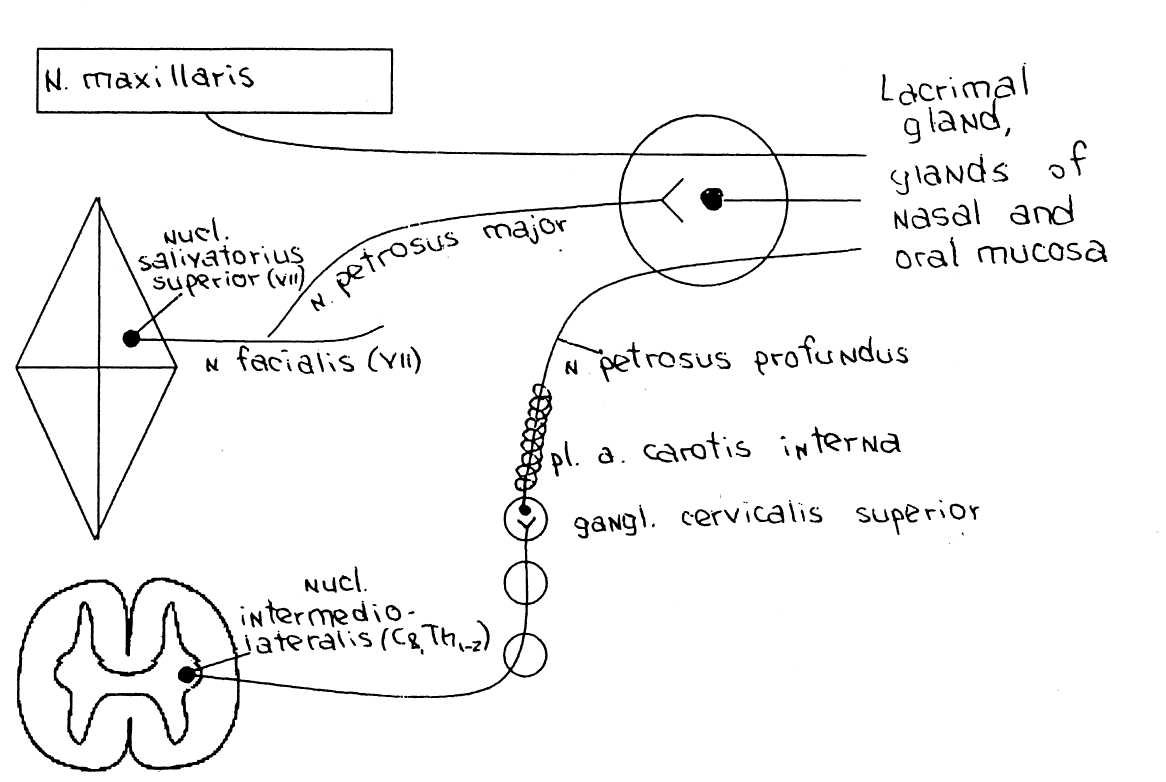 N. maxillaris
Lacrimal
gland,
glands of
nasal and
oral mucosa
nucl.
salivatorius
superior (VII)
N. petrosus major
N facialis (VII)
N. petrosus profundus
pl. a. carotis interna
gangl. cervicalis superior
nucl.
intermedio-
lateralis (C8, Th1-2)